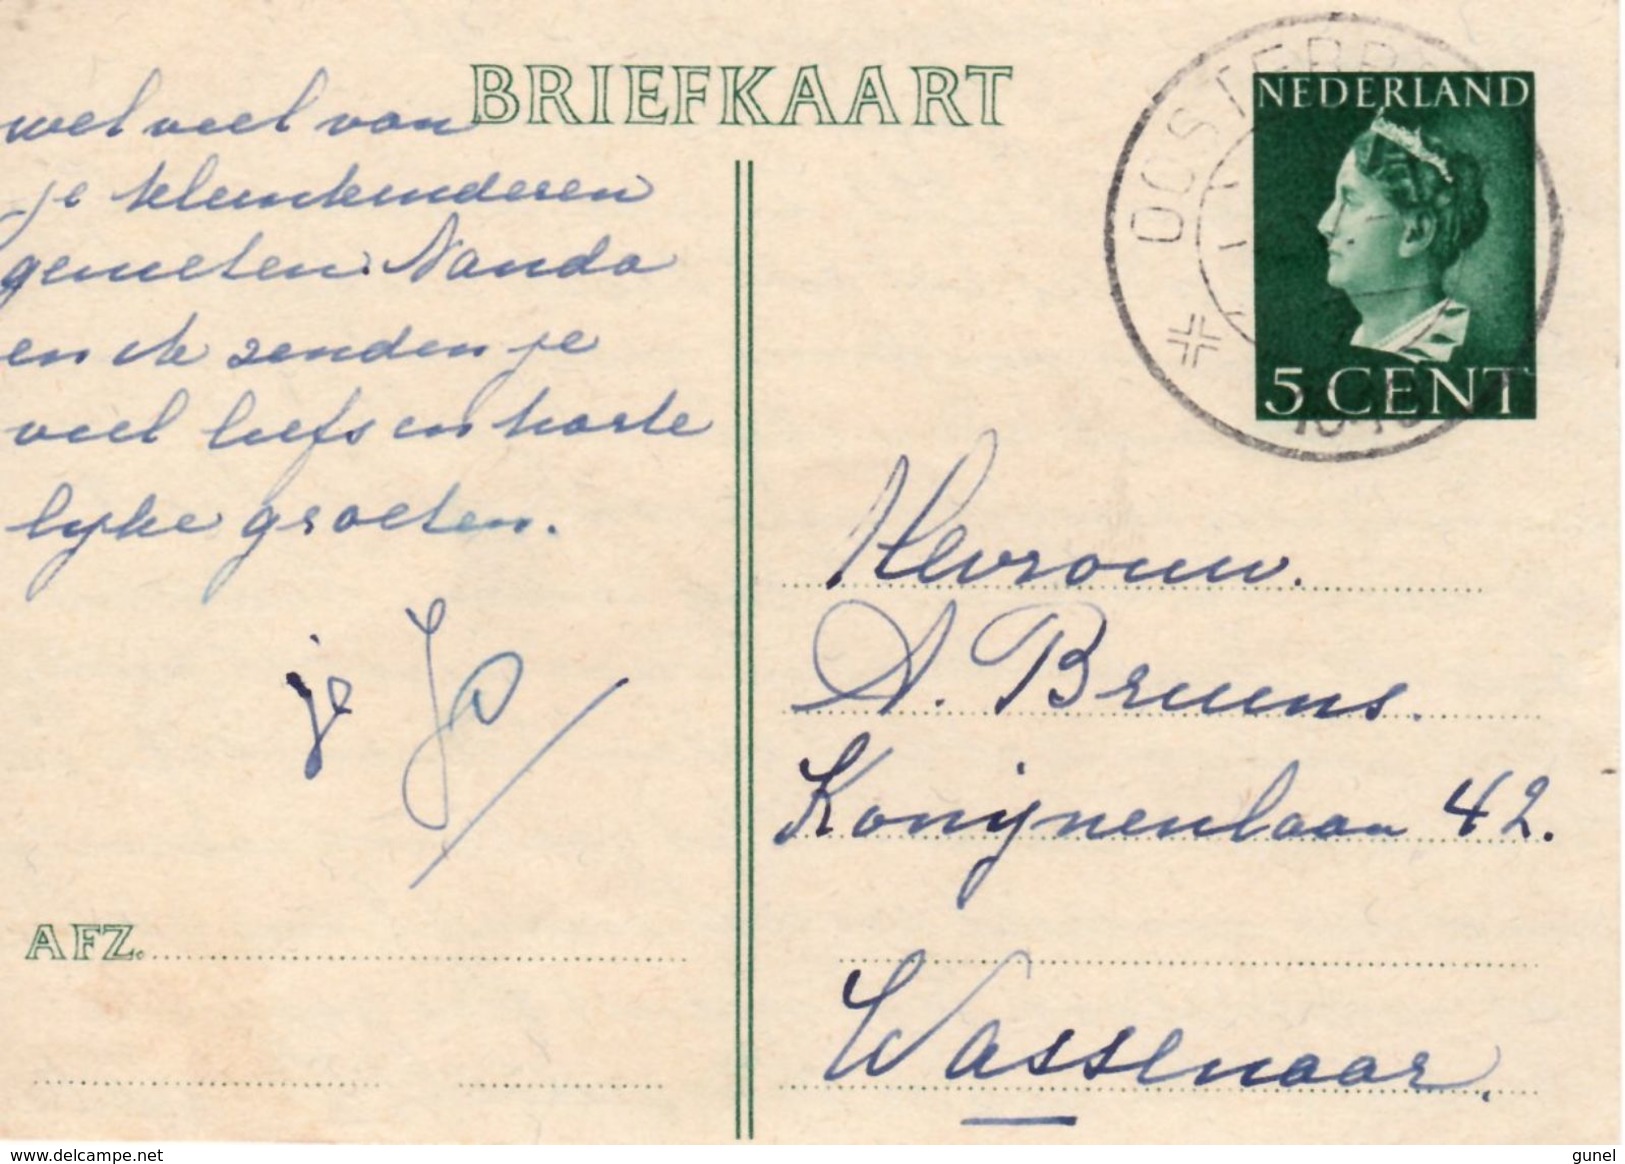 BRIEFKAART
wel veel van
je kleinkinderen
genieten. Nanda
en ik zenden je
veel liefs en harte
lijke groeten.
je Jo
AFZ.
OOSTERB
NEDERLAND
5 CENT
Mevrouw.
A. Bruens.
Konijnenlaan 42.
Wassenaar.
www.delcampe.net
gunel